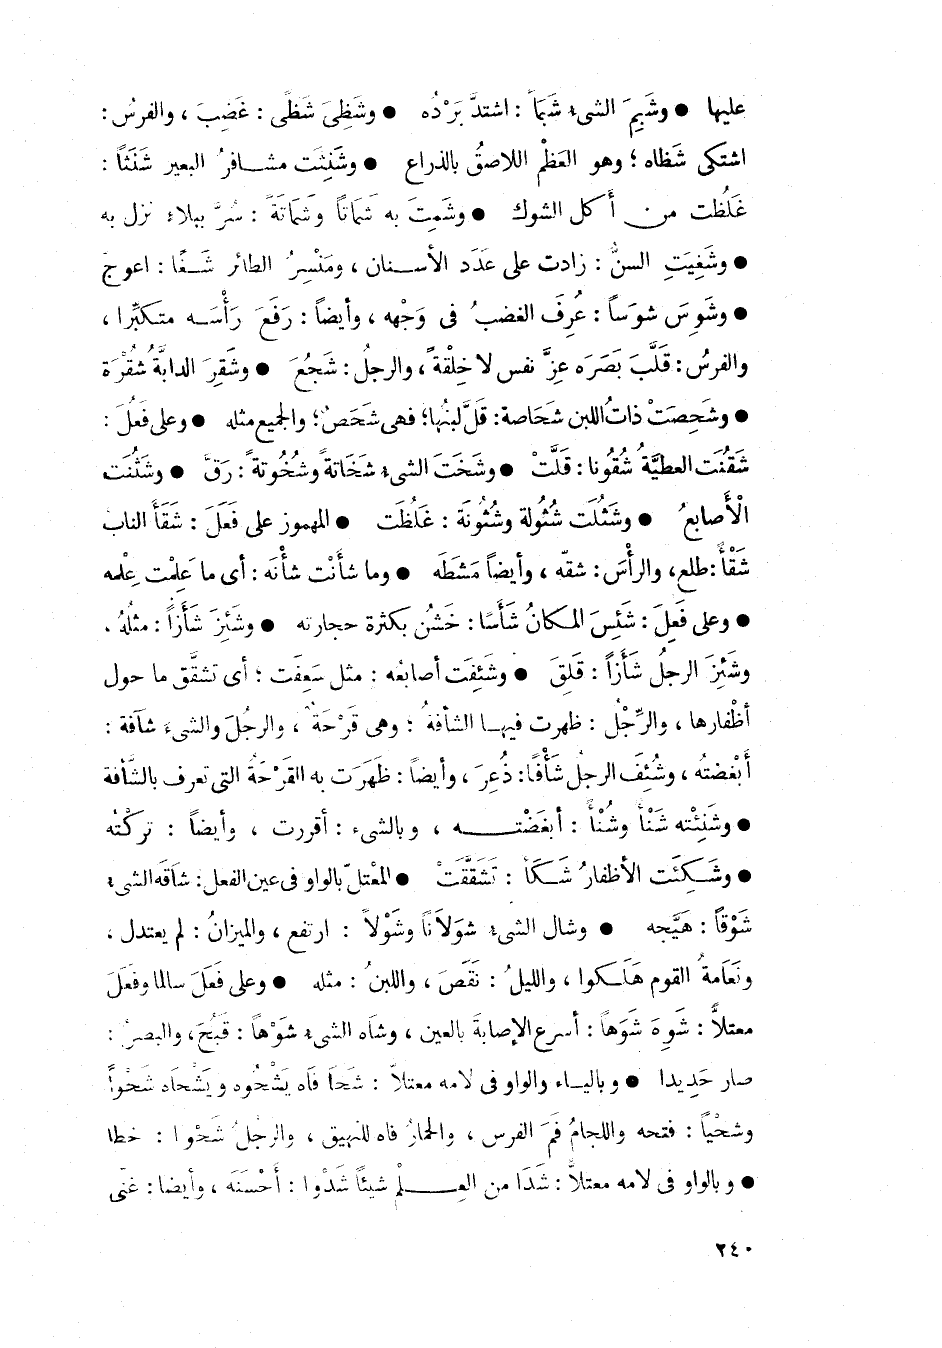 عليها ● وشَبِمَ الشىء شَبَمًا : اشتدَّ بَرْدُه ● وشَظِىَ شَظًى : غَضِبَ ، والفرسُ :
اشتكى شَظاه ؛ وهو العَظْم اللاصقُ بالذراع ● وشَنِثَت مشافرُ البعير شَنَثاً :
غَلُظت من أكل الشوك ● وشَمِتَ به شَمَاتاً وشَمَاتَةً : سُرَّ ببلاء نزل به
● وشَغِيَتِ السنُّ : زادت على عَدَد الأسنان ، ومَنْسِرُ الطائر شَغًا : اعوجّ
● وشَوِسَ شوَساً : عُرِفَ الغضبُ فى وَجْهه ، وأيضاً : رَفَعَ رَأْسَه متكبِّرا ،
والفرسُ : قَلَّبَ بَصَرَه عِزَّ نفس لا خِلْقةً ، والرجلُ : شَجُعَ ● وشَقِرَ الدابَّةُ شُقْرَة
● وشَحِصَتْ ذاتُ اللبن شَحَاصة : قَلَّ لبنُها ؛ فهى شَحَصٌ ؛ والجميع مثله ● وعلى فَعُلَ :
شَقُنَت العطيَّةُ شُقُونا : قَلَّتْ ● وشَخَتَ الشىء شَخَاتةً وشُخُوتةً : رَقَّ ● وشَثُنَت
الْأَصابعُ ● وشَثُلَت شُثُولة وشُثُونَة : غَلُظَت ● المهموز على فَعَلَ : شَقَأَ الناب
شَقْأً : طلع ، والرأْسَ : شقّه ، وأيضاً مَشَطَه ● وما شأَنْت شأْنَه : أى ما عَلِمْت عِلْمه
● وعلى فَعِلَ : شَئِسَ المكانُ شَأَسًا : خَشُن بكثرة حجارته ● وشَئِزَ شَأَزاً : مثلُهُ .
وشَئِزَ الرجلُ شَأَزاً : قَلِقَ ● وشَئِفَت أصابعُه : مثل سَعِفَت ؛ أى تشقَّق ما حول
أظْفارها ، والرِّجْلُ : ظهرت فيها الشأفةُ ؛ وهى قَرْحَةٌ ، والرجُلَ والشىءَ شآفة :
أَبْغضتُه ، وشُئِفَ الرجلُ شَأْفًا : ذُعِرَ ، وأيضاً : ظَهَرَت به القَرْحَةُ التى تعرف بالشَّأفة
● وشَنِئْته شَنْأً وشُنْأً : أبغَضْتــه ، وبالشىء : أقررت ، وأيضاً : تركْتُه
● وشَكِئَت الأظفارُ شَكَأً : تَشَقَّقَتْ ● المعْتلّ بالواو فى عين الفعل : شاقَه الشىء
شَوْقاً : هَيَّجه ● وشال الشىء شوَلاَناً وشَوْلاً : ارتفع ، والميزانُ : لم يعتدل ،
ونَعَامةُ القوم هَلَكوا ، والليلُ : نَقَصَ ، واللبنُ : مثله ● وعلى فَعَلَ سالما وفَعَلَ
معتلاًّ : شَوِهَ شَوَهاً : أسرع الإصابةَ بالعين ، وشاه الشىء شوْهاً : قَبُحَ ، والبصرُ :
صار حَدِيدا ● وبالياء والواو فى لامه معتلاًّ : شَحَا فَاه يَشْحُوه ويَشْحاه شَحْواً
وشحْياً : فتحه واللجامُ فمَ الفرس ، والحمارُ فاه للنهيق ، والرجلُ شَحْوا : خطا
● وبالواو فى لامه معتلاًّ : شَدَا من العِلْم شيئاً شَدْوا : أَحْسَنَه ، وأيضا : غنّى
٢٤٠